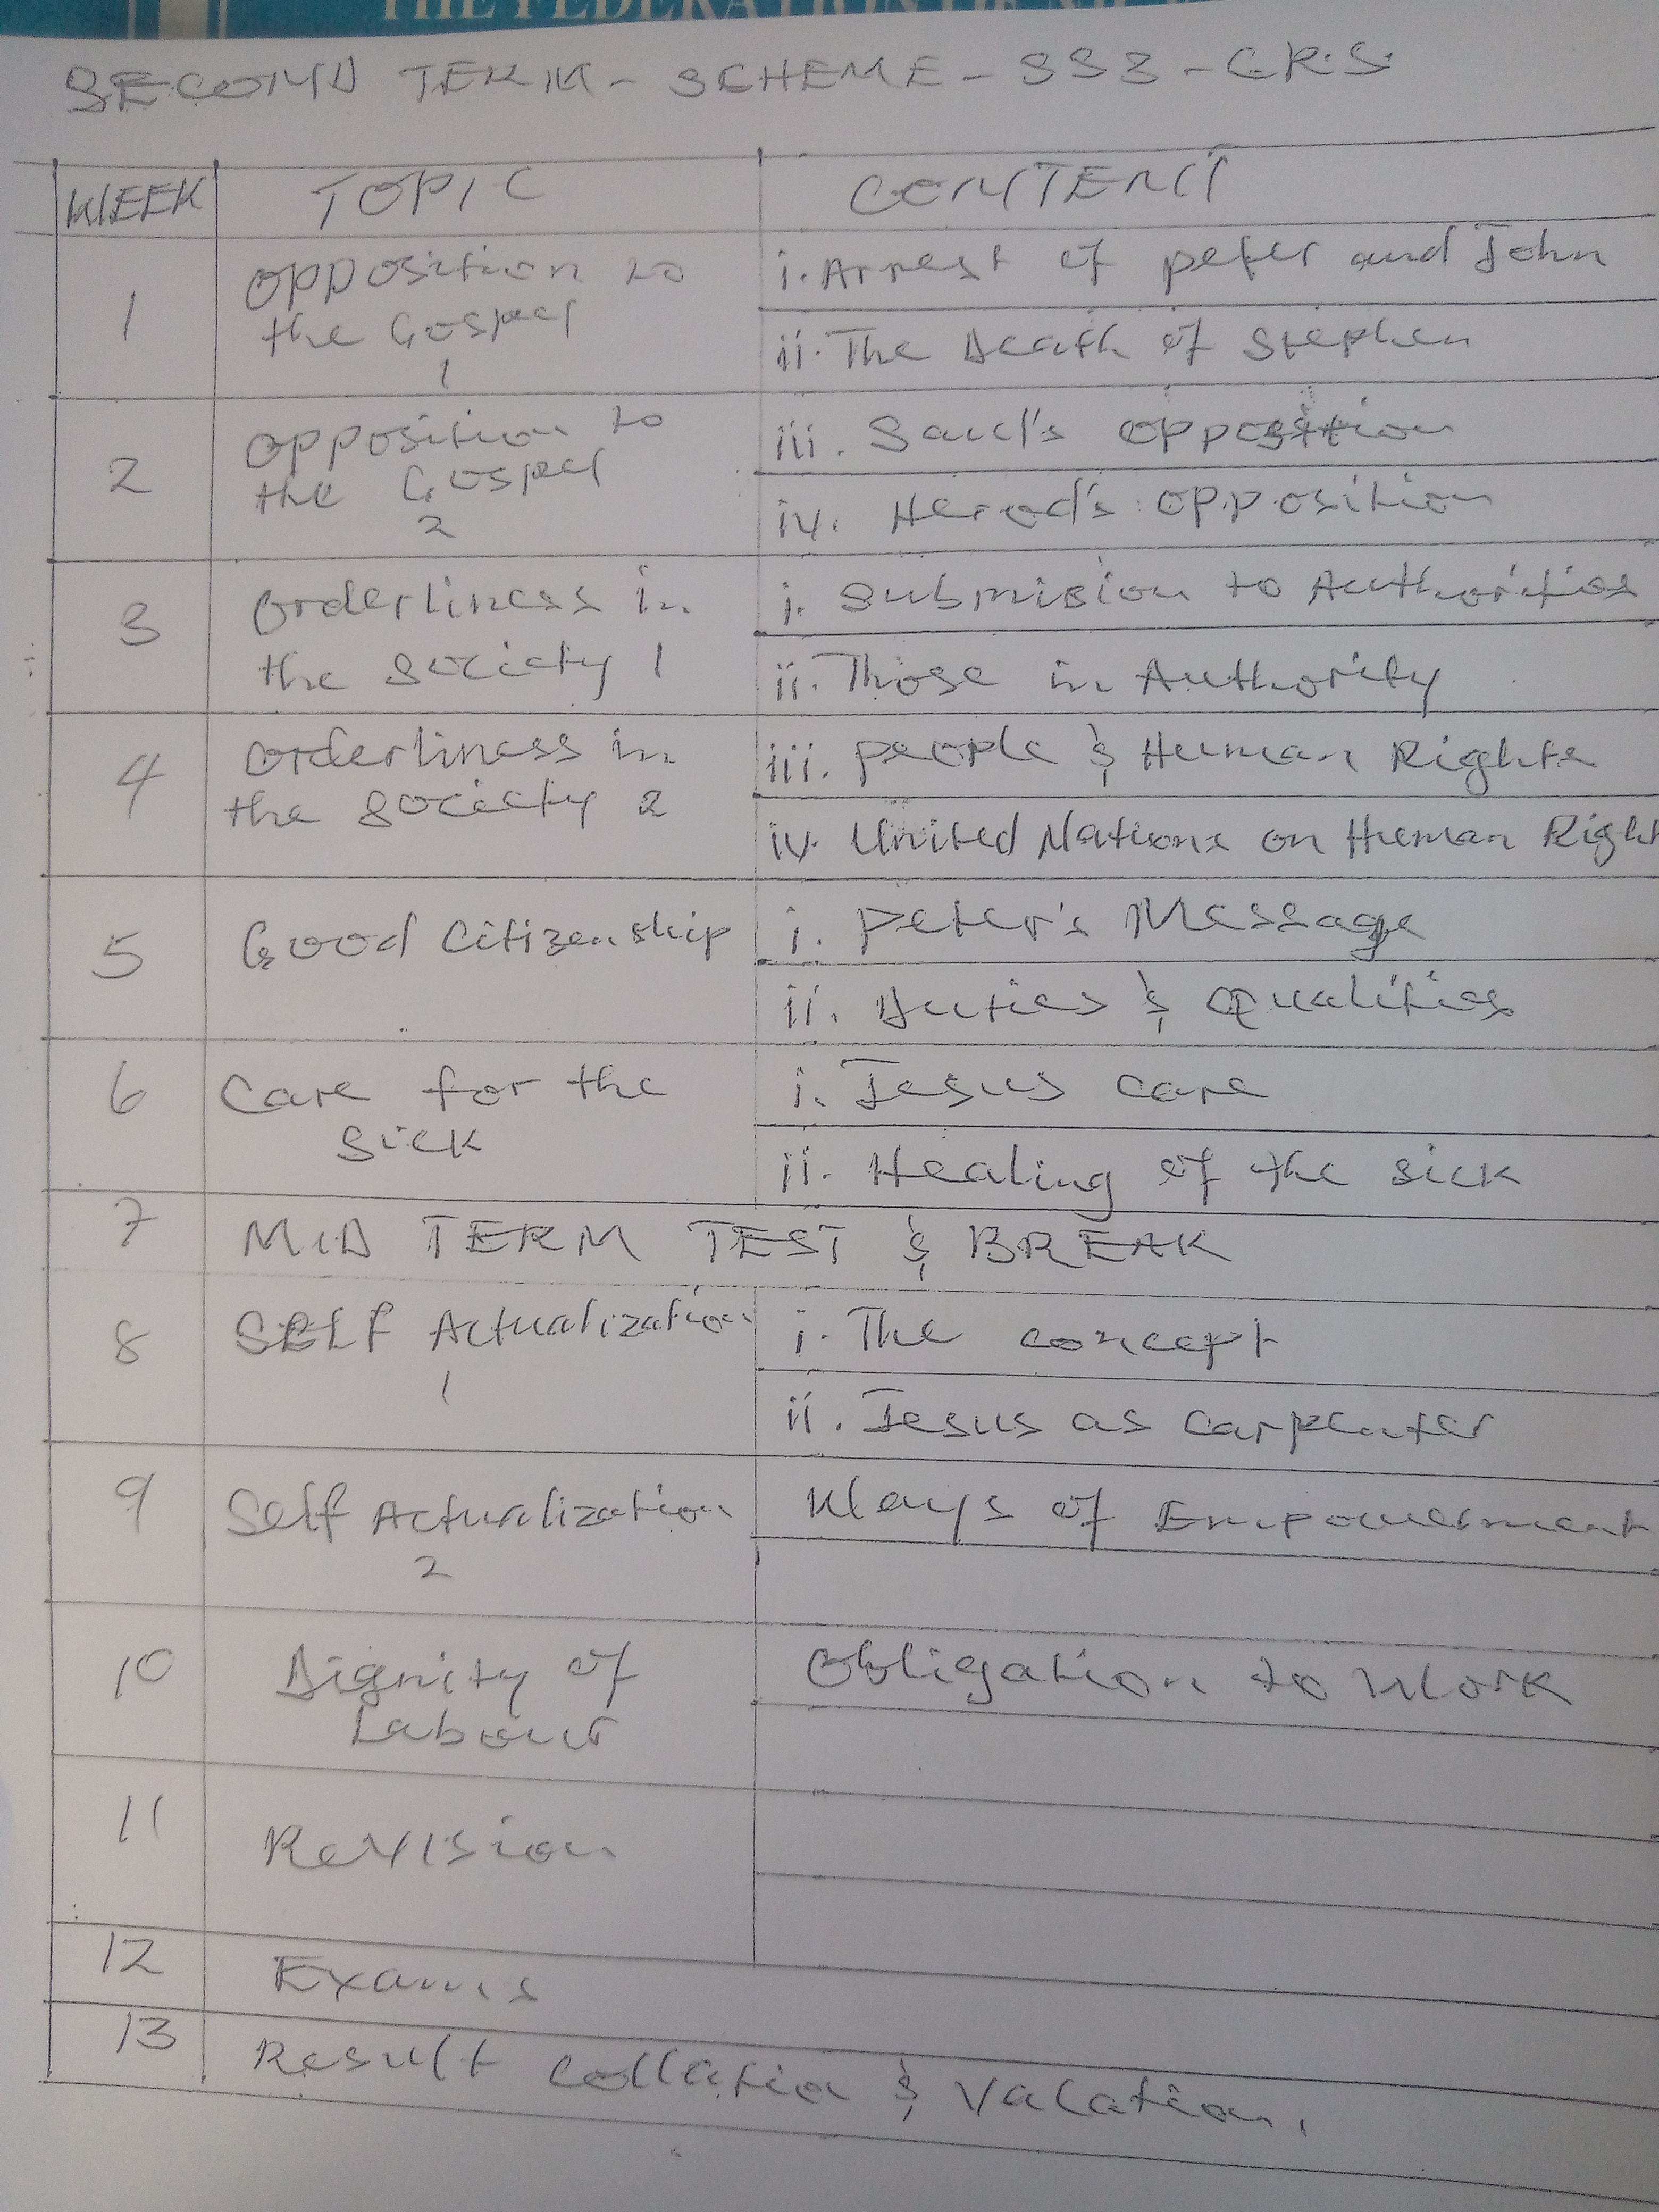 THE FEDERATION OF
SECOND TERM - SCHEME - SS3 - C.R.S.
WEEK TOPIC CONTENT
1 Opposition to the Gospel 1
i. Arrest of peter and John
ii. The Death of Stephen
2 Opposition to the Gospel 2
iii. Saul's opposition
iv. Herod's opposition
3 Orderliness in the society 1
i. Submision to Authorities
ii. Those in Authority
4 Orderliness in the society 2
iii. people & Human Rights
iv. United Nations on Human Right
5 Good Citizenship
i. Peter's Message
ii. Duties & qualities
6 Care for the Sick
i. Jesus care
ii. Healing of the sick
7 MID TERM TEST & BREAK
8 SELF Actualization 1
i. The concept
ii. Jesus as carpenter
9 Self Actualization 2
Ways of Empowerment
10 Dignity of Labour
Obligation to Work
11 Revision
12 Exams
13 Result Collation & Vacation.